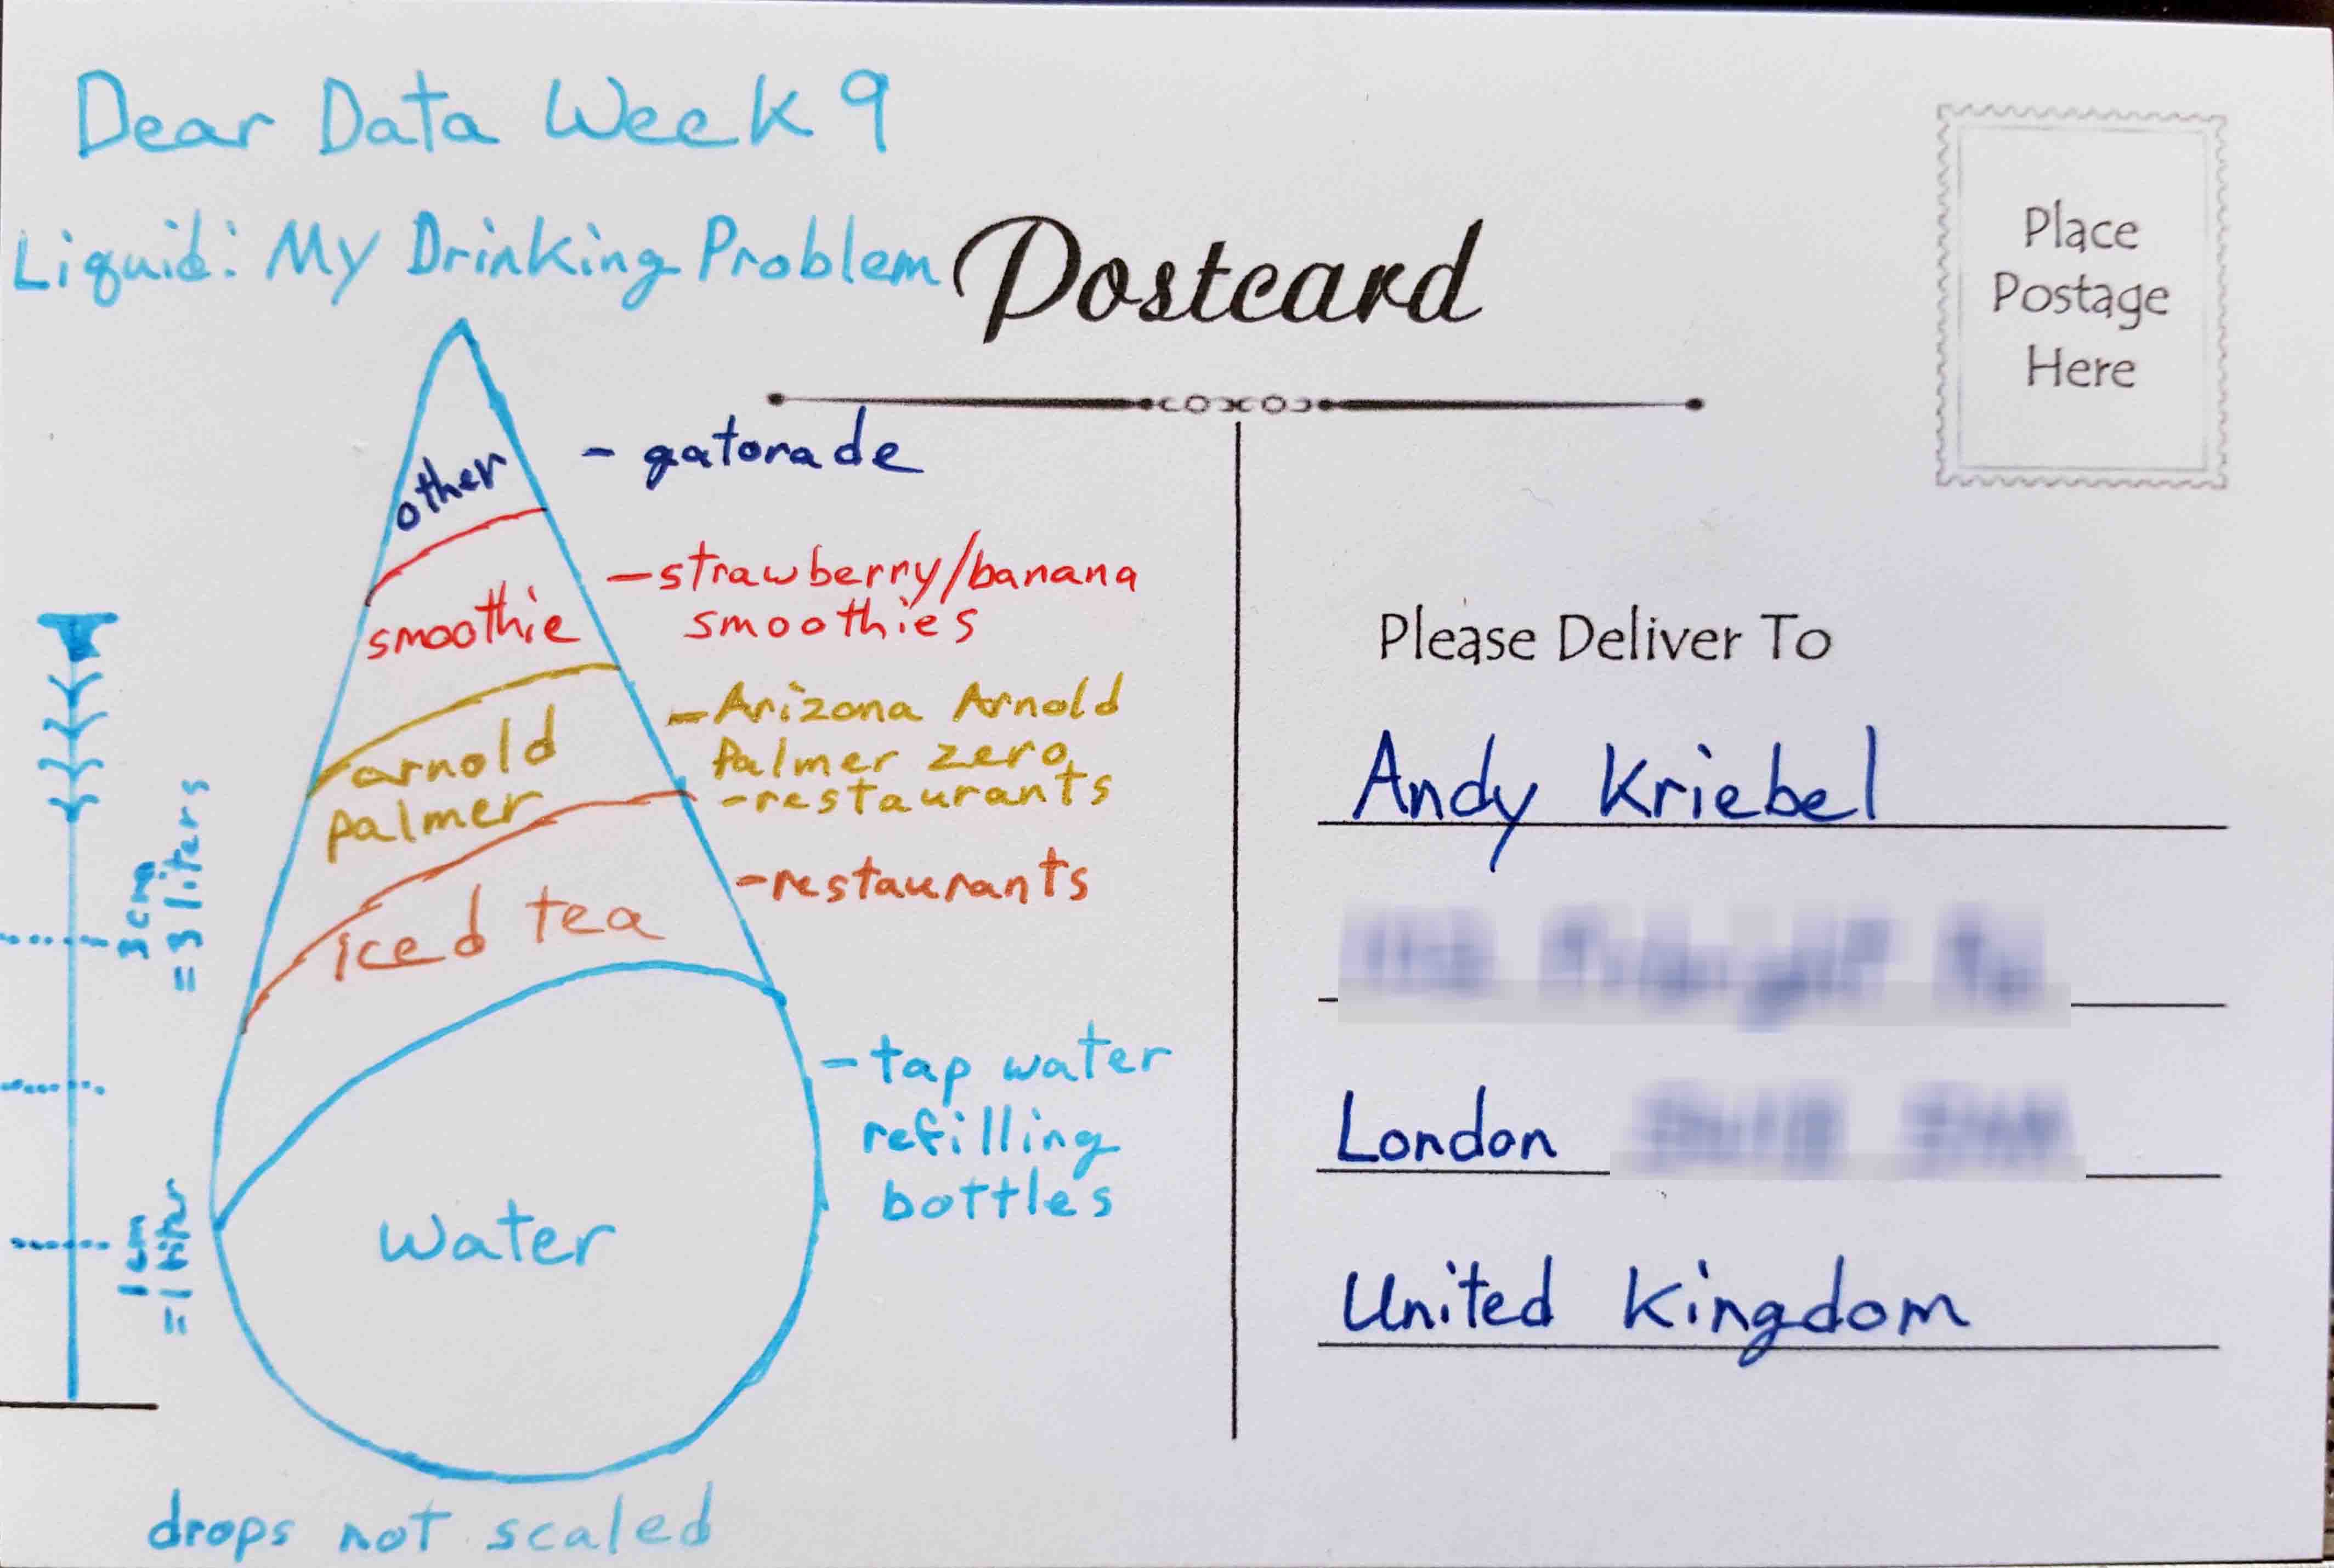 Dear Data Week 9
Liquid: My Drinking Problem
Postcard
Place
Postage
Here
other
- gatorade
smoothie
- strawberry/banana
smoothies
arnold
palmer
- Arizona Arnold
Palmer zero
- restaurants
iced tea
- restaurants
water
- tap water
refilling
bottles
3cm
= 3 liters
1cm
= 1 liter
drops not scaled
Please Deliver To
Andy Kriebel
London
United Kingdom